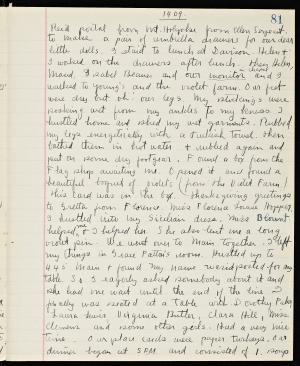 1909.
81
Recd postal from Mr. Holgate from Ellen Sargent.
to make a pair of umbrella drawers for our dear
little dolls. I staid to lunch at Davison. Helen &
I worked on the drawers after lunch. Then Helen,
Maud, Isabel and our monitor and I
walked to Young's and the violet farm. Our feet
were dry but oh! our legs. My stockings were
soaking wet from my ankles to my knees. I
hustled home and shed my wet garments. I rubbed
my legs energetically with a Turkish towel. Then
bathed them in hot water & rubbed again and
put on some dry footgear. Found a box from the
Flag Shop awaiting me. Opened it and found a
beautiful boquet of violets (from the Violet Farm)
This card was in the box. Thanksgiving greetings
to from Florence. Miss Florence Jones Hopper.
I hustled into my Sicilian dress. Miss Blount
helped me & I helped her. She also lent me a long
violet pin. We went over to Main together. I left
my things in Grace room. Hustled up to
445 Main & found my name wasn't posted for any
table. So I eagerly asked somebody about it and
she bade me wait until the end of the line. I
finally was seated at a table with Dorothy
Laura Virginia Butler, Clara Hill, Miss
Clemens and some other girls. Had a very nice
time. Our place cards were paper turkeys. Our
dinner began at 5 P.M. and consisted of 1. soup